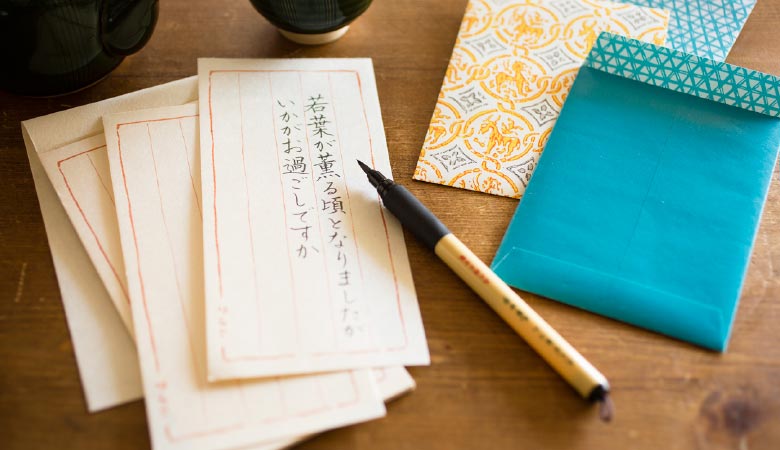 若葉が薫る頃となりましたが
いかがお過ごしですか